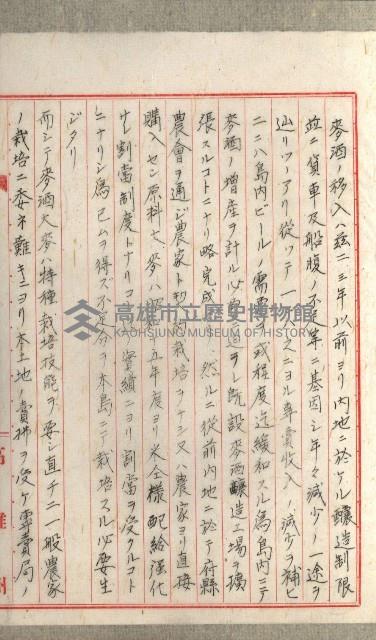 麥酒ノ移入ハ茲二三年以前ヨリ内地ニ於ケル釀造制限
竝ニ貨車及船腹ノ不足等ニ基因シ年々減少ノ一途ヲ
辿リツツアリ從ツテ一 之ニヨル專賣收入ノ減少ヲ補ヒ
二ニハ島内ビールノ需要 或程度迄緩和スル為島内ニテ
麥酒ノ增産ヲ計ル必要 迫ヲ 既設麥酒釀造工場ヲ擴
張スルコトニナリ略完成 然ルニ從前内地ニ於テ府縣
農會ヲ通ジ農家ト契 栽培ヲナシ又ハ農家ヨリ直接
購入セシ原料大麥ハ昭 五年度ヨリ米仝樣配給強化
サレ割當制度トナリコ 實績ニヨリ割當ヲ受クルコト
ニナリシ為已ムヲ得ズ不足分ヲ本島ニテ栽培スル必要生
ジタリ
而シテ麥酒大麥ハ特種栽培技能ヲ要シ直チニ一般農家
ノ栽培ニ委ネ難キニヨリ本土地ノ賣拂ヲ受ケ專賣局ノ
高雄州
高雄市立歷史博物館
KAOHSIUNG MUSEUM OF HISTORY